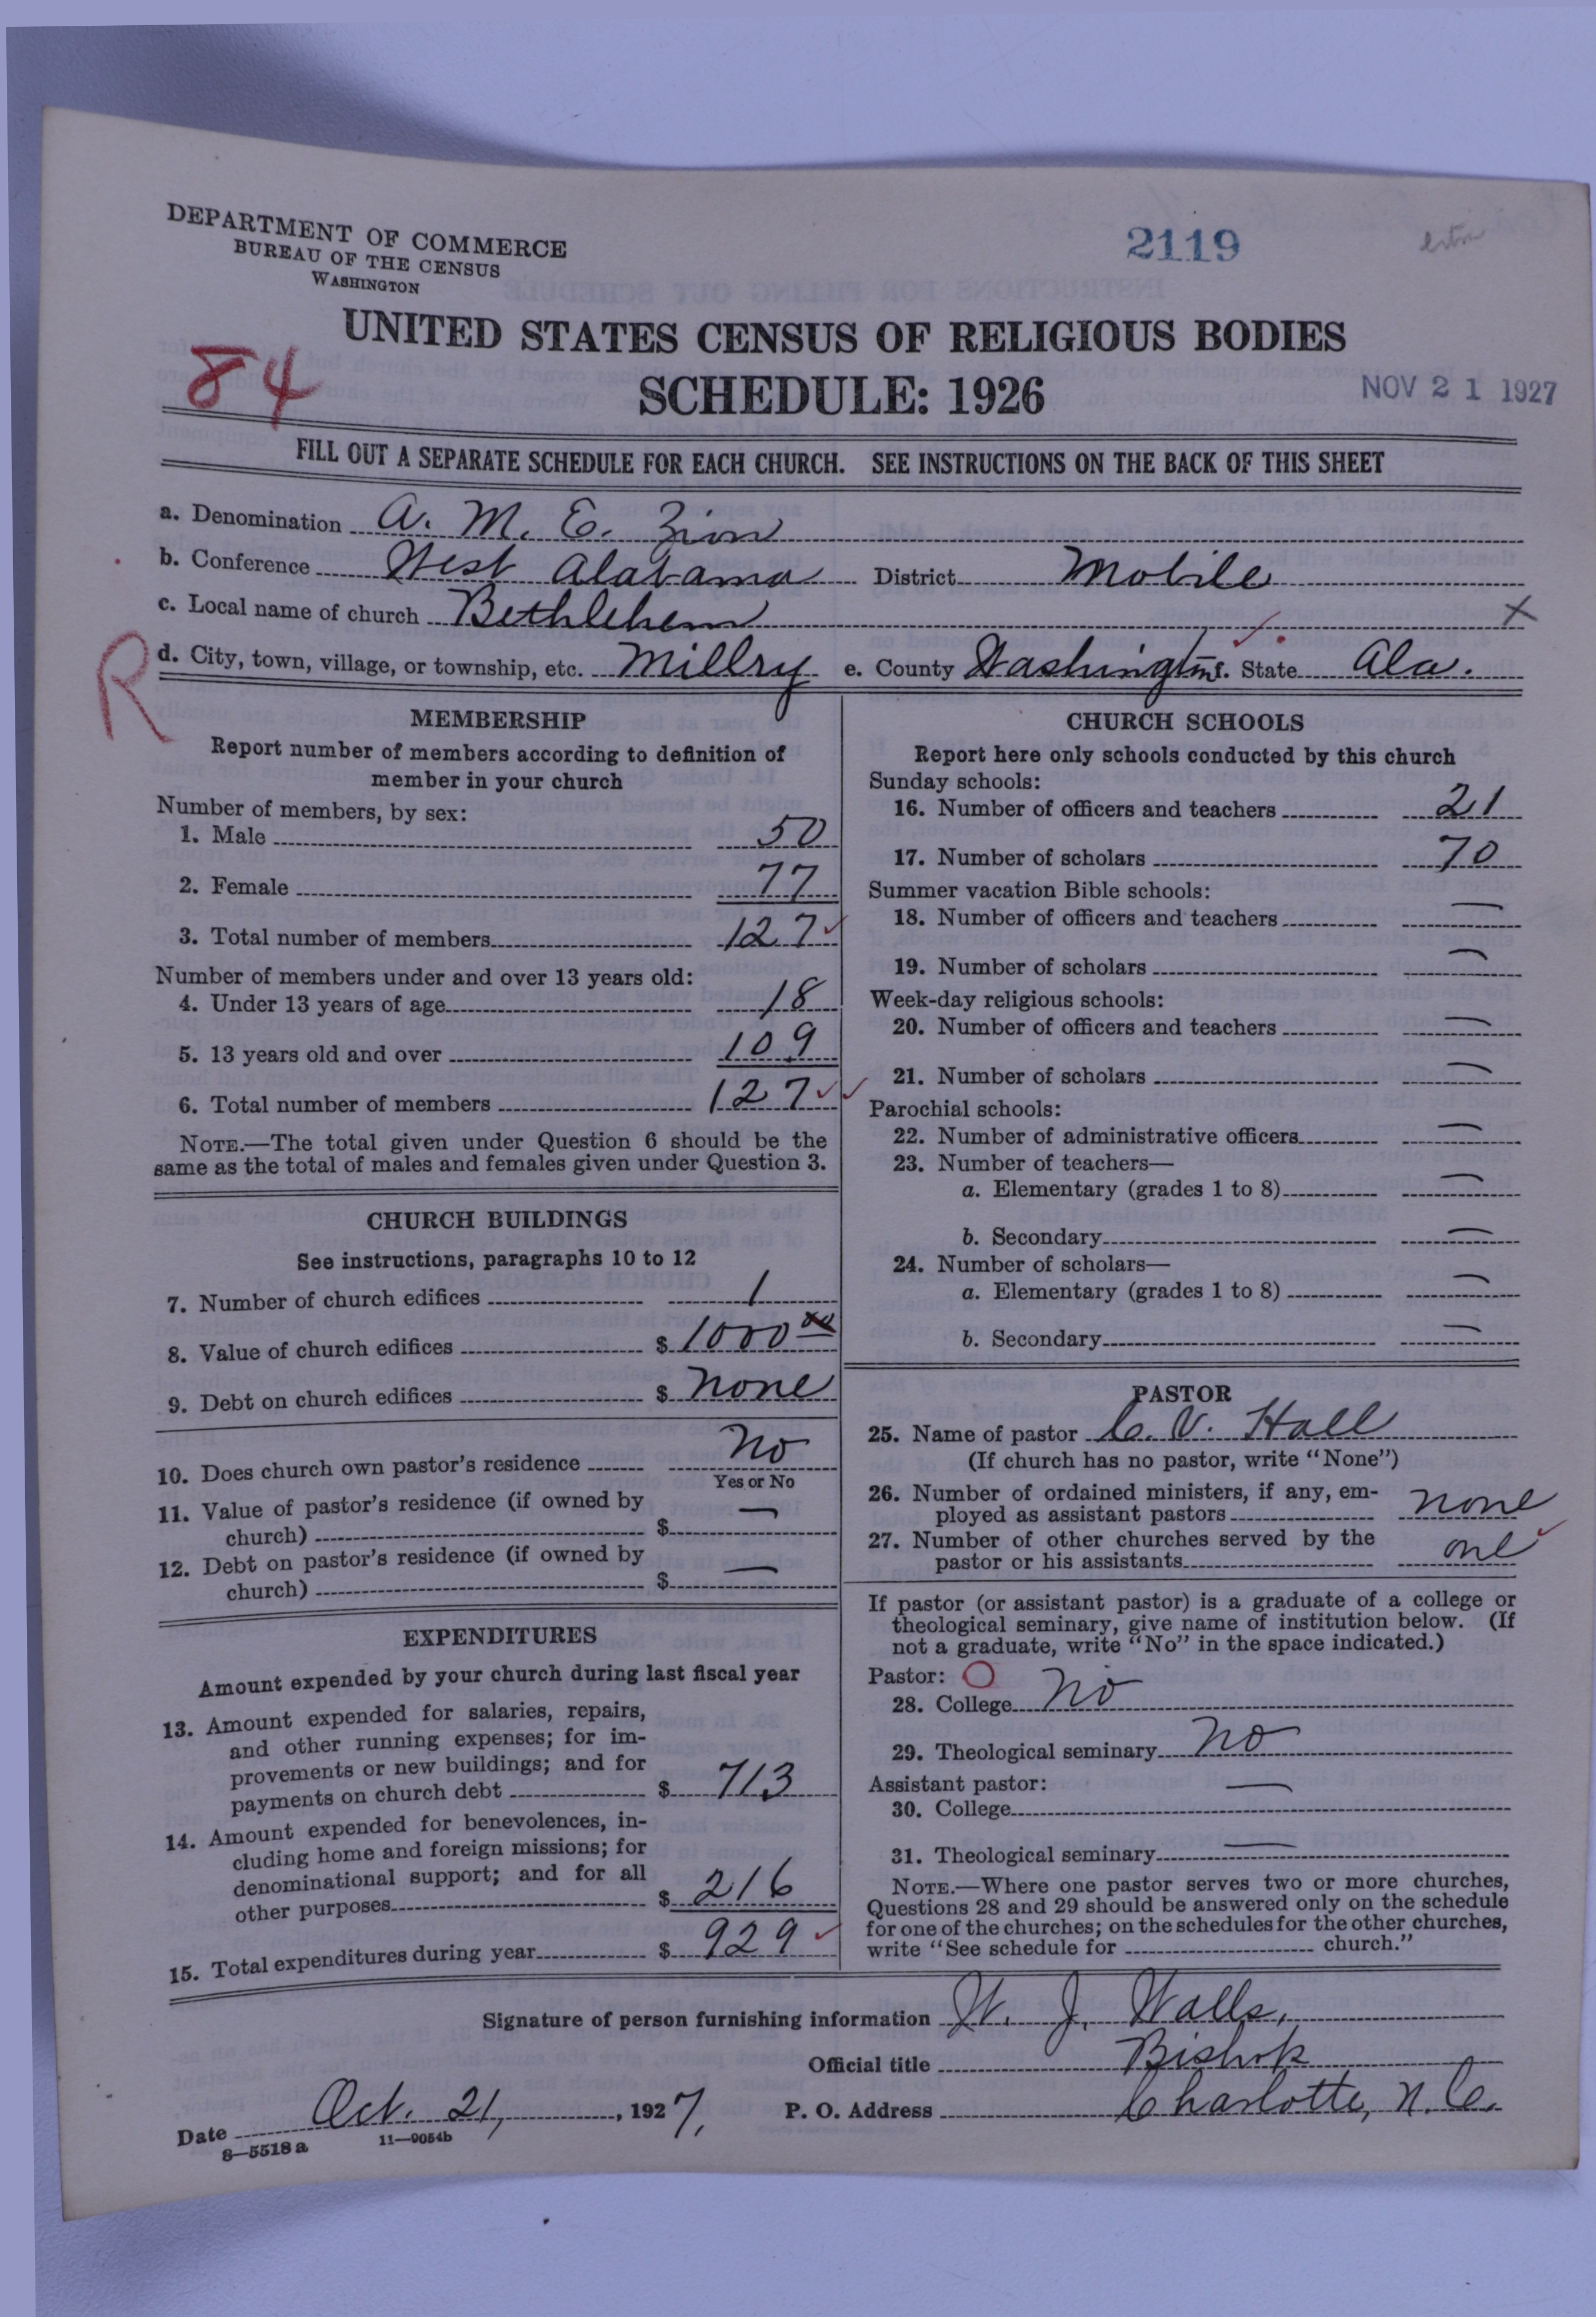 DEPARTMENT OF COMMERCE
BUREAU OF THE CENSUS
WASHINGTON
2119
UNITED STATES CENSUS OF RELIGIOUS BODIES
84
SCHEDULE: 1926
NOV 21 1927
FILL OUT A SEPARATE SCHEDULE FOR EACH CHURCH. SEE INSTRUCTIONS ON THE BACK OF THIS SHEET
a. Denomination A. M. E. Zion
b. Conference West Alabama District Mobile
c. Local name of church Bethlehem X
R
d. City, town, village, or township, etc. Millry e. County Washington f. State Ala.
MEMBERSHIP
Report number of members according to definition of
member in your church
Number of members, by sex:
1. Male 50
2. Female 77
3. Total number of members 127
Number of members under and over 13 years old:
4. Under 13 years of age 18
5. 13 years old and over 109
6. Total number of members 127
NOTE.—The total given under Question 6 should be the
same as the total of males and females given under Question 3.
CHURCH BUILDINGS
See instructions, paragraphs 10 to 12
7. Number of church edifices 1
8. Value of church edifices $ 1000 00
9. Debt on church edifices $ none
10. Does church own pastor's residence No
Yes or No
11. Value of pastor's residence (if owned by
church) $ —
12. Debt on pastor's residence (if owned by
church) $ —
EXPENDITURES
Amount expended by your church during last fiscal year
13. Amount expended for salaries, repairs,
and other running expenses; for im-
provements or new buildings; and for
payments on church debt $ 713
14. Amount expended for benevolences, in-
cluding home and foreign missions; for
denominational support; and for all
other purposes $ 216
15. Total expenditures during year $ 929
CHURCH SCHOOLS
Report here only schools conducted by this church
Sunday schools:
16. Number of officers and teachers 21
17. Number of scholars 70
Summer vacation Bible schools:
18. Number of officers and teachers —
19. Number of scholars —
Week-day religious schools:
20. Number of officers and teachers —
21. Number of scholars —
Parochial schools:
22. Number of administrative officers —
23. Number of teachers—
a. Elementary (grades 1 to 8) —
b. Secondary —
24. Number of scholars—
a. Elementary (grades 1 to 8) —
b. Secondary —
PASTOR
25. Name of pastor C. V. Hall
(If church has no pastor, write "None")
26. Number of ordained ministers, if any, em-
ployed as assistant pastors none
27. Number of other churches served by the
pastor or his assistants one
If pastor (or assistant pastor) is a graduate of a college or
theological seminary, give name of institution below. (If
not a graduate, write "No" in the space indicated.)
Pastor: O
28. College No
29. Theological seminary No
Assistant pastor:
30. College —
31. Theological seminary —
NOTE.—Where one pastor serves two or more churches,
Questions 28 and 29 should be answered only on the schedule
for one of the churches; on the schedules for the other churches,
write "See schedule for church."
Signature of person furnishing information W. J. Walls,
Official title Bishop
Date Oct. 21, 1927, P. O. Address Charlotte, N. C.
8—5518 a 11—9054b